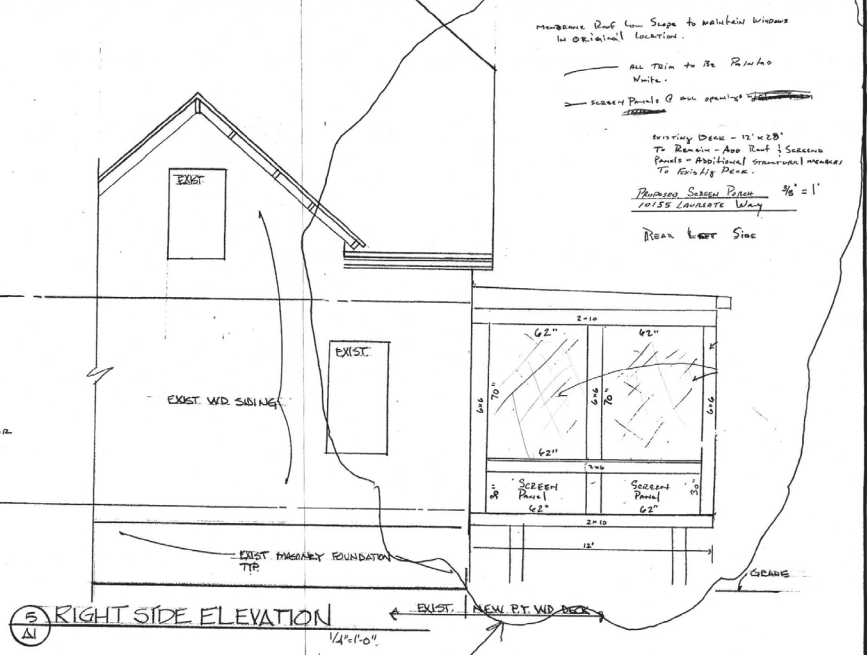 MEMBRANE Roof Low Slope to MAINTAIN WINDOWS
IN ORIGINAL LOCATION.
ALL TRIM to BE PAINTED
WHITE.
SCREEN PANELS @ ALL openings
EXISTING DECK - 12' x 28'
To REMAIN - ADD Roof & SCREENED
PANELS - ADDITIONAL STRUCTURAL MEMBERS
To Existing DECK.
PROPOSED SCREEN PORCH 3/8" = 1'
10155 LAUREATE WAY
REAR LEFT SIDE
EXIST.
EXIST.
EXIST. WD. SIDING
2x10
62" 62"
6x6 70" 6x6 70" 6x6
62"
2x6
30" SCREEN PANEL 62"
SCREEN PANEL 62" 30"
2x10
12'
EXIST. MASONRY FOUNDATION
TYP.
GRADE
EXIST. NEW P.T. WD. DECK
5
A1
RIGHT SIDE ELEVATION
1/4"=1'-0"